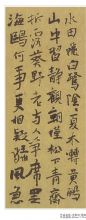 水田飛白鷺陰〻夏木囀黃鸝
山中習靜觀朝槿松下清齋
折露葵野老與人爭席罷
海鷗何事更相疑